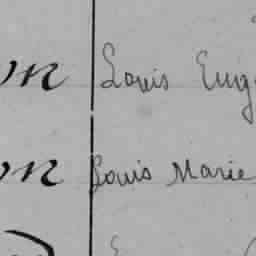 on Louis Eug
on Louis Marie